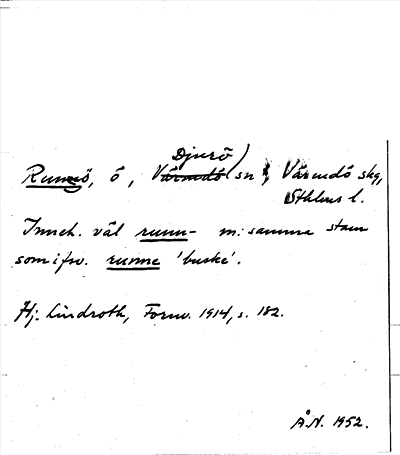 Djurö)
Runnö, ö, Värmdö sn, Värmdö skg,
Sthlms l.
Inneh. väl runn- m: samma stam
som i fsv. runne 'buske'.
Hj. Lindroth, Fornv. 1914, s. 182.
Å.N. 1952.